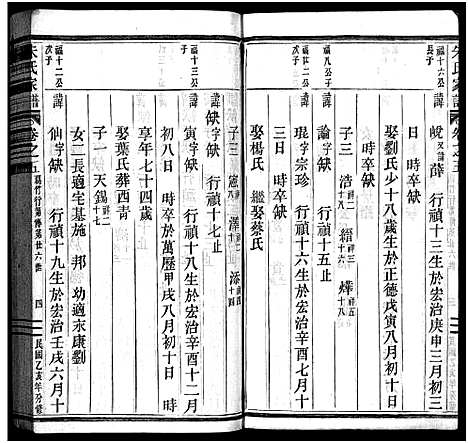 朱氏家譜 卷之五
福十六公長子
諱 峻 又諱 薛 行禎十三生於宏治庚申三月初三
日 時卒缺
娶劉氏少十八歲生於正德戊寅八月初十日
時卒缺
子三 浩 祥八 縉 祥五 燁 祥十八
福八公子
諱 論 字缺 行禎十五止
福廿二公
諱 琨 字珍 行禎十六生於宏治辛酉七月十
三日 時卒缺
娶楊氏 繼娶蔡氏
子三 憲 澤 添 十四
福十三公次子
諱 缺 字缺 行禎十七止
福十二公次子
諱 寅 字缺 行禎十八生於宏治辛酉十二月
初八日 時卒於萬歷甲戌八月初十日 時
享年七十四歲
娶葉氏葬西青
子一 天錫 祥十二
女二長適宅基施 邦 幼適永康劉
諱 仙 字缺 行禎十九生於宏治壬戌六月十
朱氏家譜 卷之五 四 民國乙亥年分修